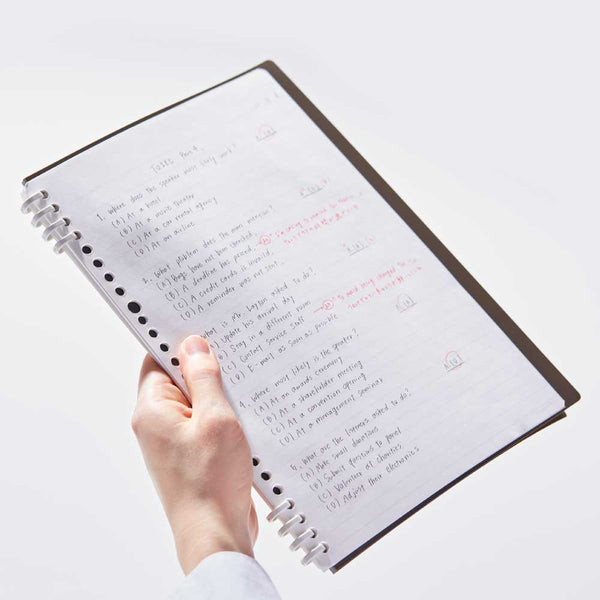 TOEIC Part 4.
1. Where does the speaker most likely work?
(A) At a hotel
(B) At a movie theater
(C) At a car rental agency
(D) At an airline
2. What problem does the man mention?
(A) Bags have not been checked.
(B) A deadline has passed.
(C) A credit cards is invalid.
(D) A reminder was not sent.
What is Mr. Logan asked to do?
(A) Update his arrival day
(B) Stay in a different room
(C) Contact Service Staff
(D) E-mail as soon as possible
4. Where most likely is the speaker?
(A) At an awards ceremony
(B) At a shareholder meeting
(C) At a convention opening
(D) At a management seminar
What are the listeners asked to do?
(A) Make small donations
(B) Submit questions to panel
(C) Volunteer at charities
(D) Adjust their electronics